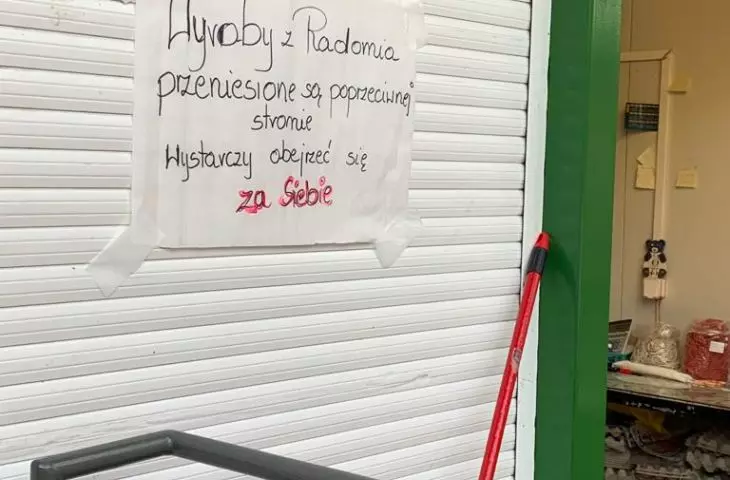 Wyroby z Radomia
przeniesione są poprzeciwnej
stronie
Wystarczy obejrzeć się
za siebie